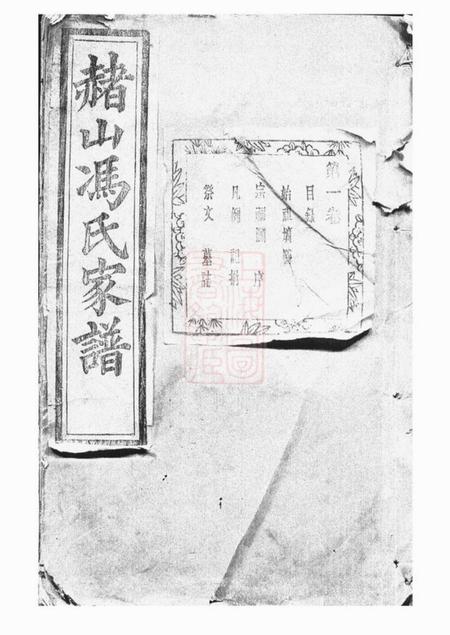 赭山馮氏家譜
第一卷
目錄
始祖墳
宗祠圖 序
凡例
祭文 墓誌